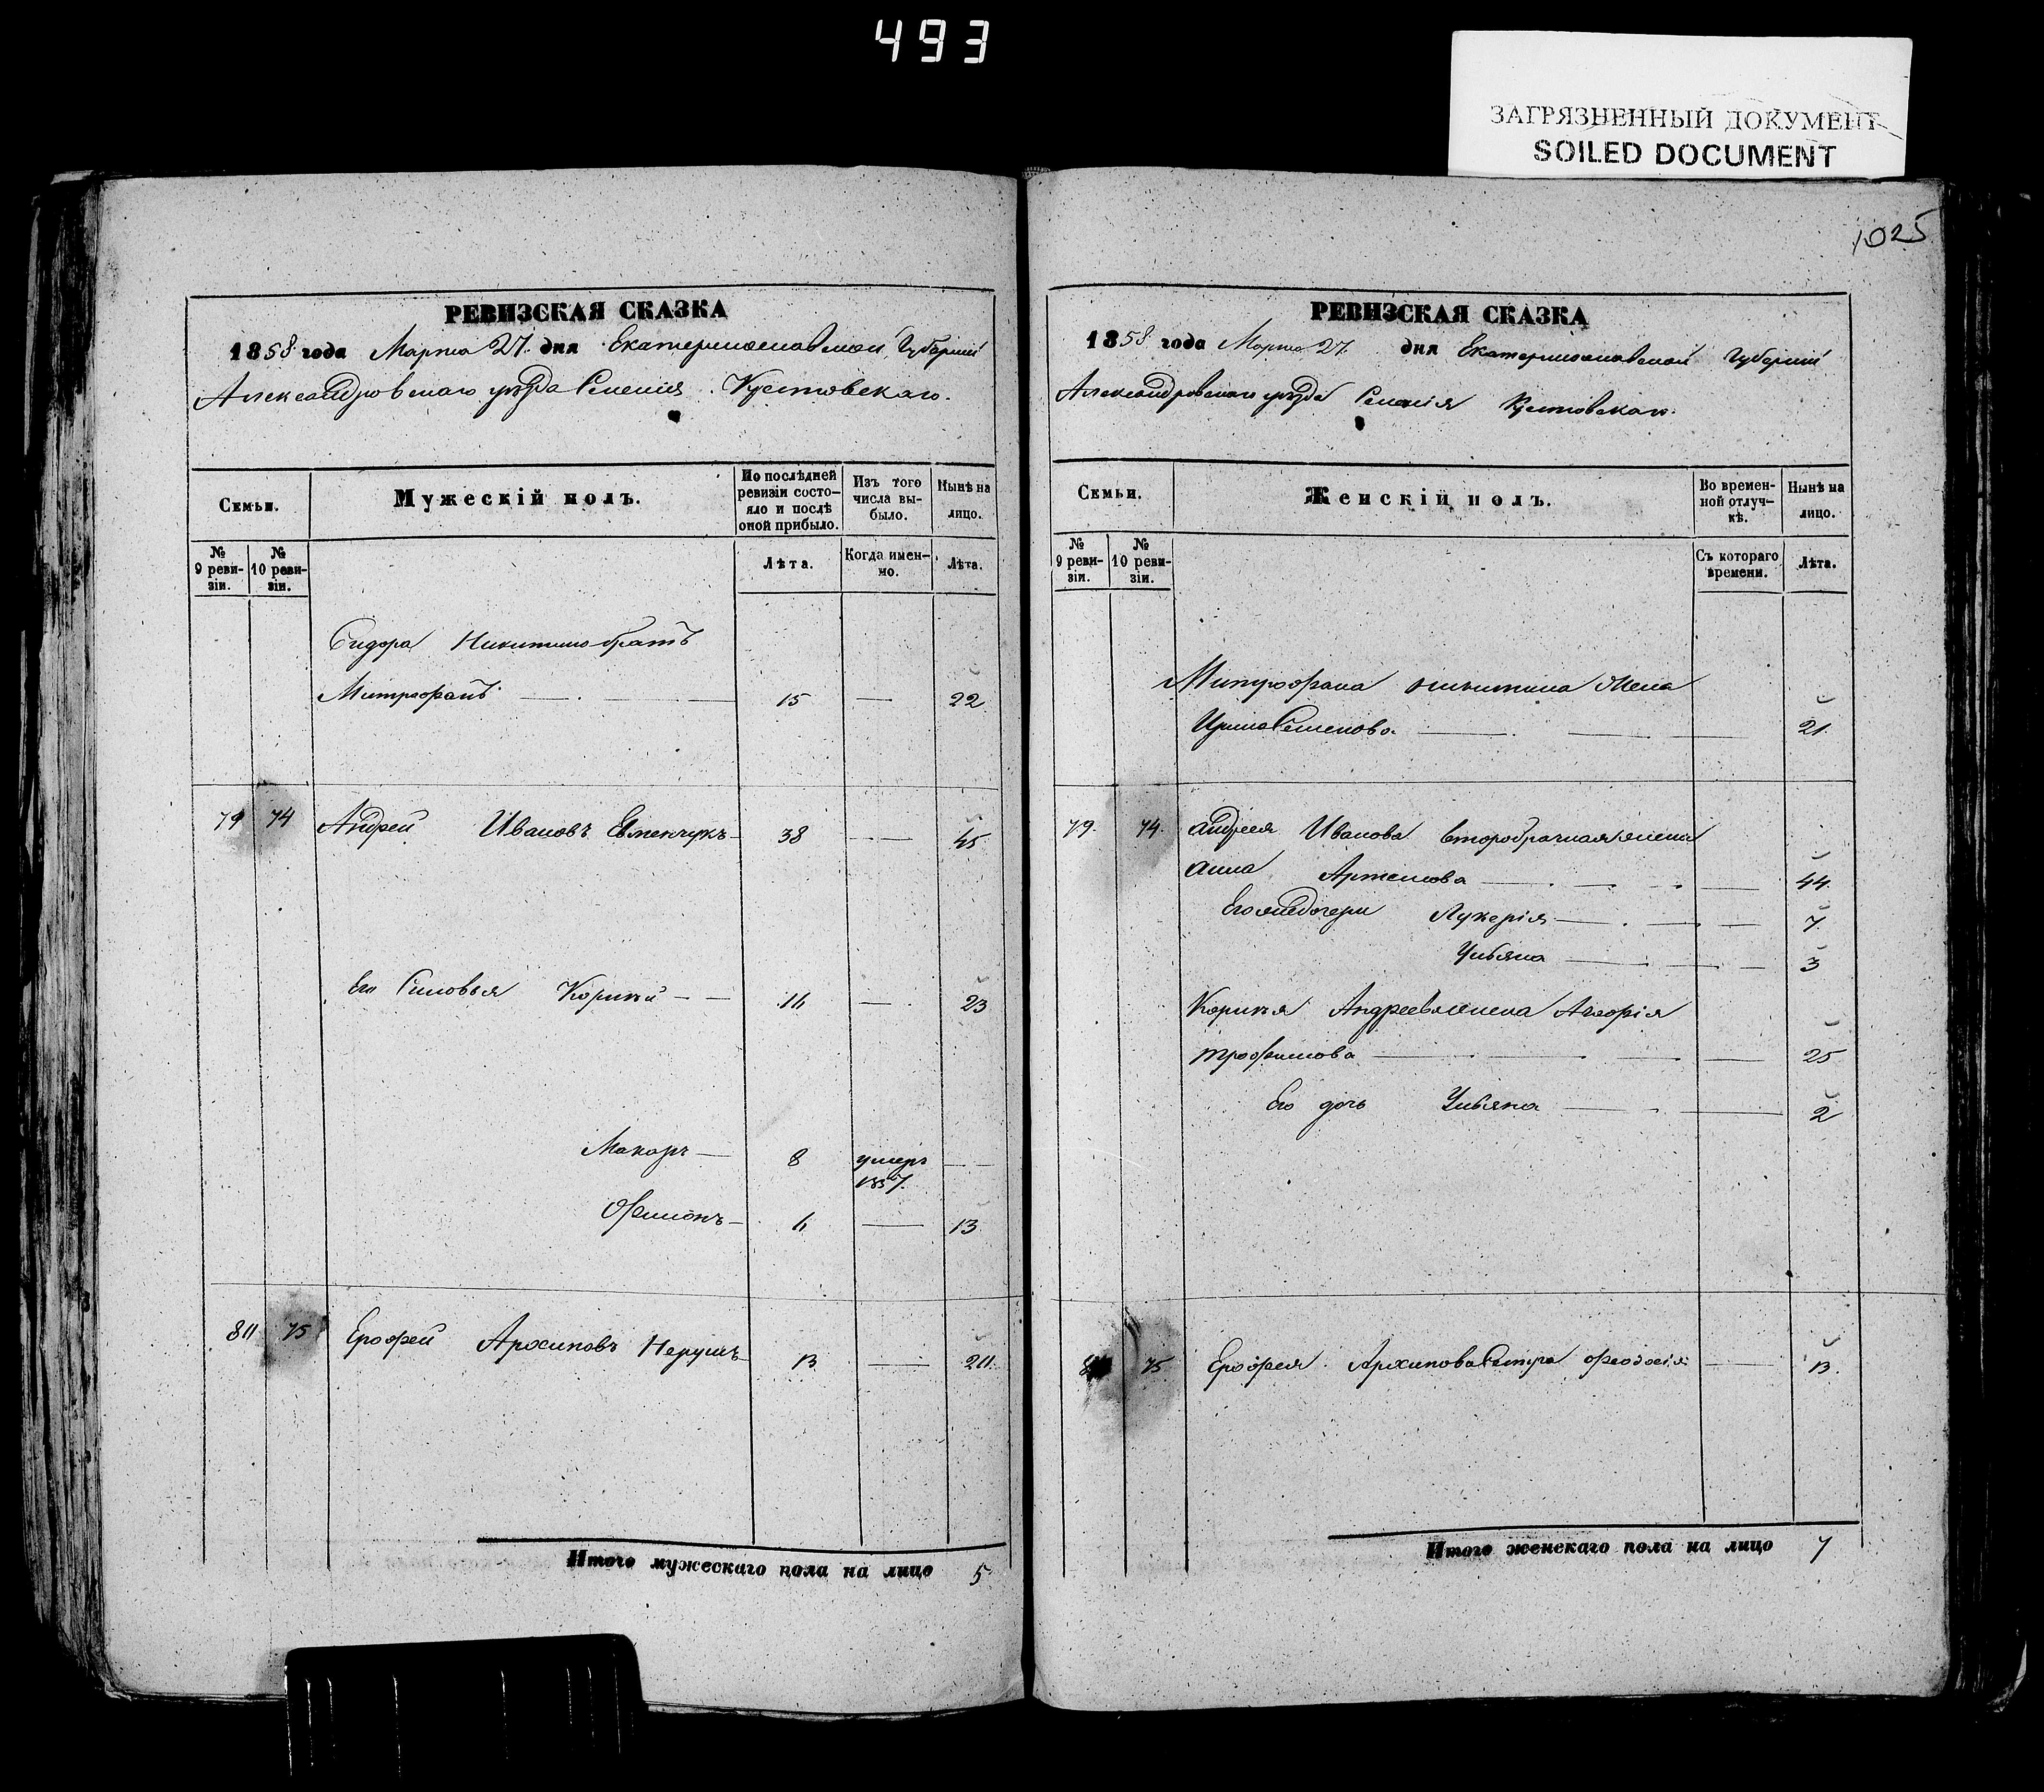 493
ЗАГРЯЗНЕННЫЙ ДОКУМЕНТ
SOILED DOCUMENT
РЕВИЗСКАЯ СКАЗКА
1858 года Марта 27. дня Екатеринославской Губернии
Александровскаго уѣзда Селенія Кустовскаго.
Семьи.
Мужескій полъ.
По послѣдней ревизіи состо-
яло и послѣ оной прибыло.
Изъ того числа вы-
было.
Нынѣ на лицо.
№ 9 реви-
зіи.
№ 10 реви-
зіи.
Лѣта.
Когда имен-
но.
Лѣта.
Сидора Никитина братъ
Митрофанъ 15 — 22
79 74 Андрей Ивановъ 38 — 45
Его Сыновья Корнѣй — — 16 — 23
Макаръ — 8 умеръ —
1857.
6 — 13
80 75 Ерофей Архиповъ Нерушъ 13 — 20.
Итого мужескаго пола на лицо 5
1025
РЕВИЗСКАЯ СКАЗКА
1858 года Марта 27. дня Екатеринославской Губерніи
Александровскаго уѣзда Селенія Кустовскаго.
Семьи.
Женскій полъ.
Во времен-
ной отлуч-
кѣ.
Нынѣ на лицо.
№ 9 реви-
зіи.
№ 10 реви-
зіи.
Съ котораго времени.
Лѣта.
Митрофана Никитина жена
Ирина Семенова. — 21.
79. 74. Андрея Иванова второбрачная жена
Анна Артемова — 44.
Его дочери Лукерія — 7.
Ульяна — 3
Корнѣя Андреева жена
Трофимова — 25
Его дочь Ульяна — 2
75. Ерофея Архипова Сестра Феодосія — 13.
Итого женскаго пола на лицо 7